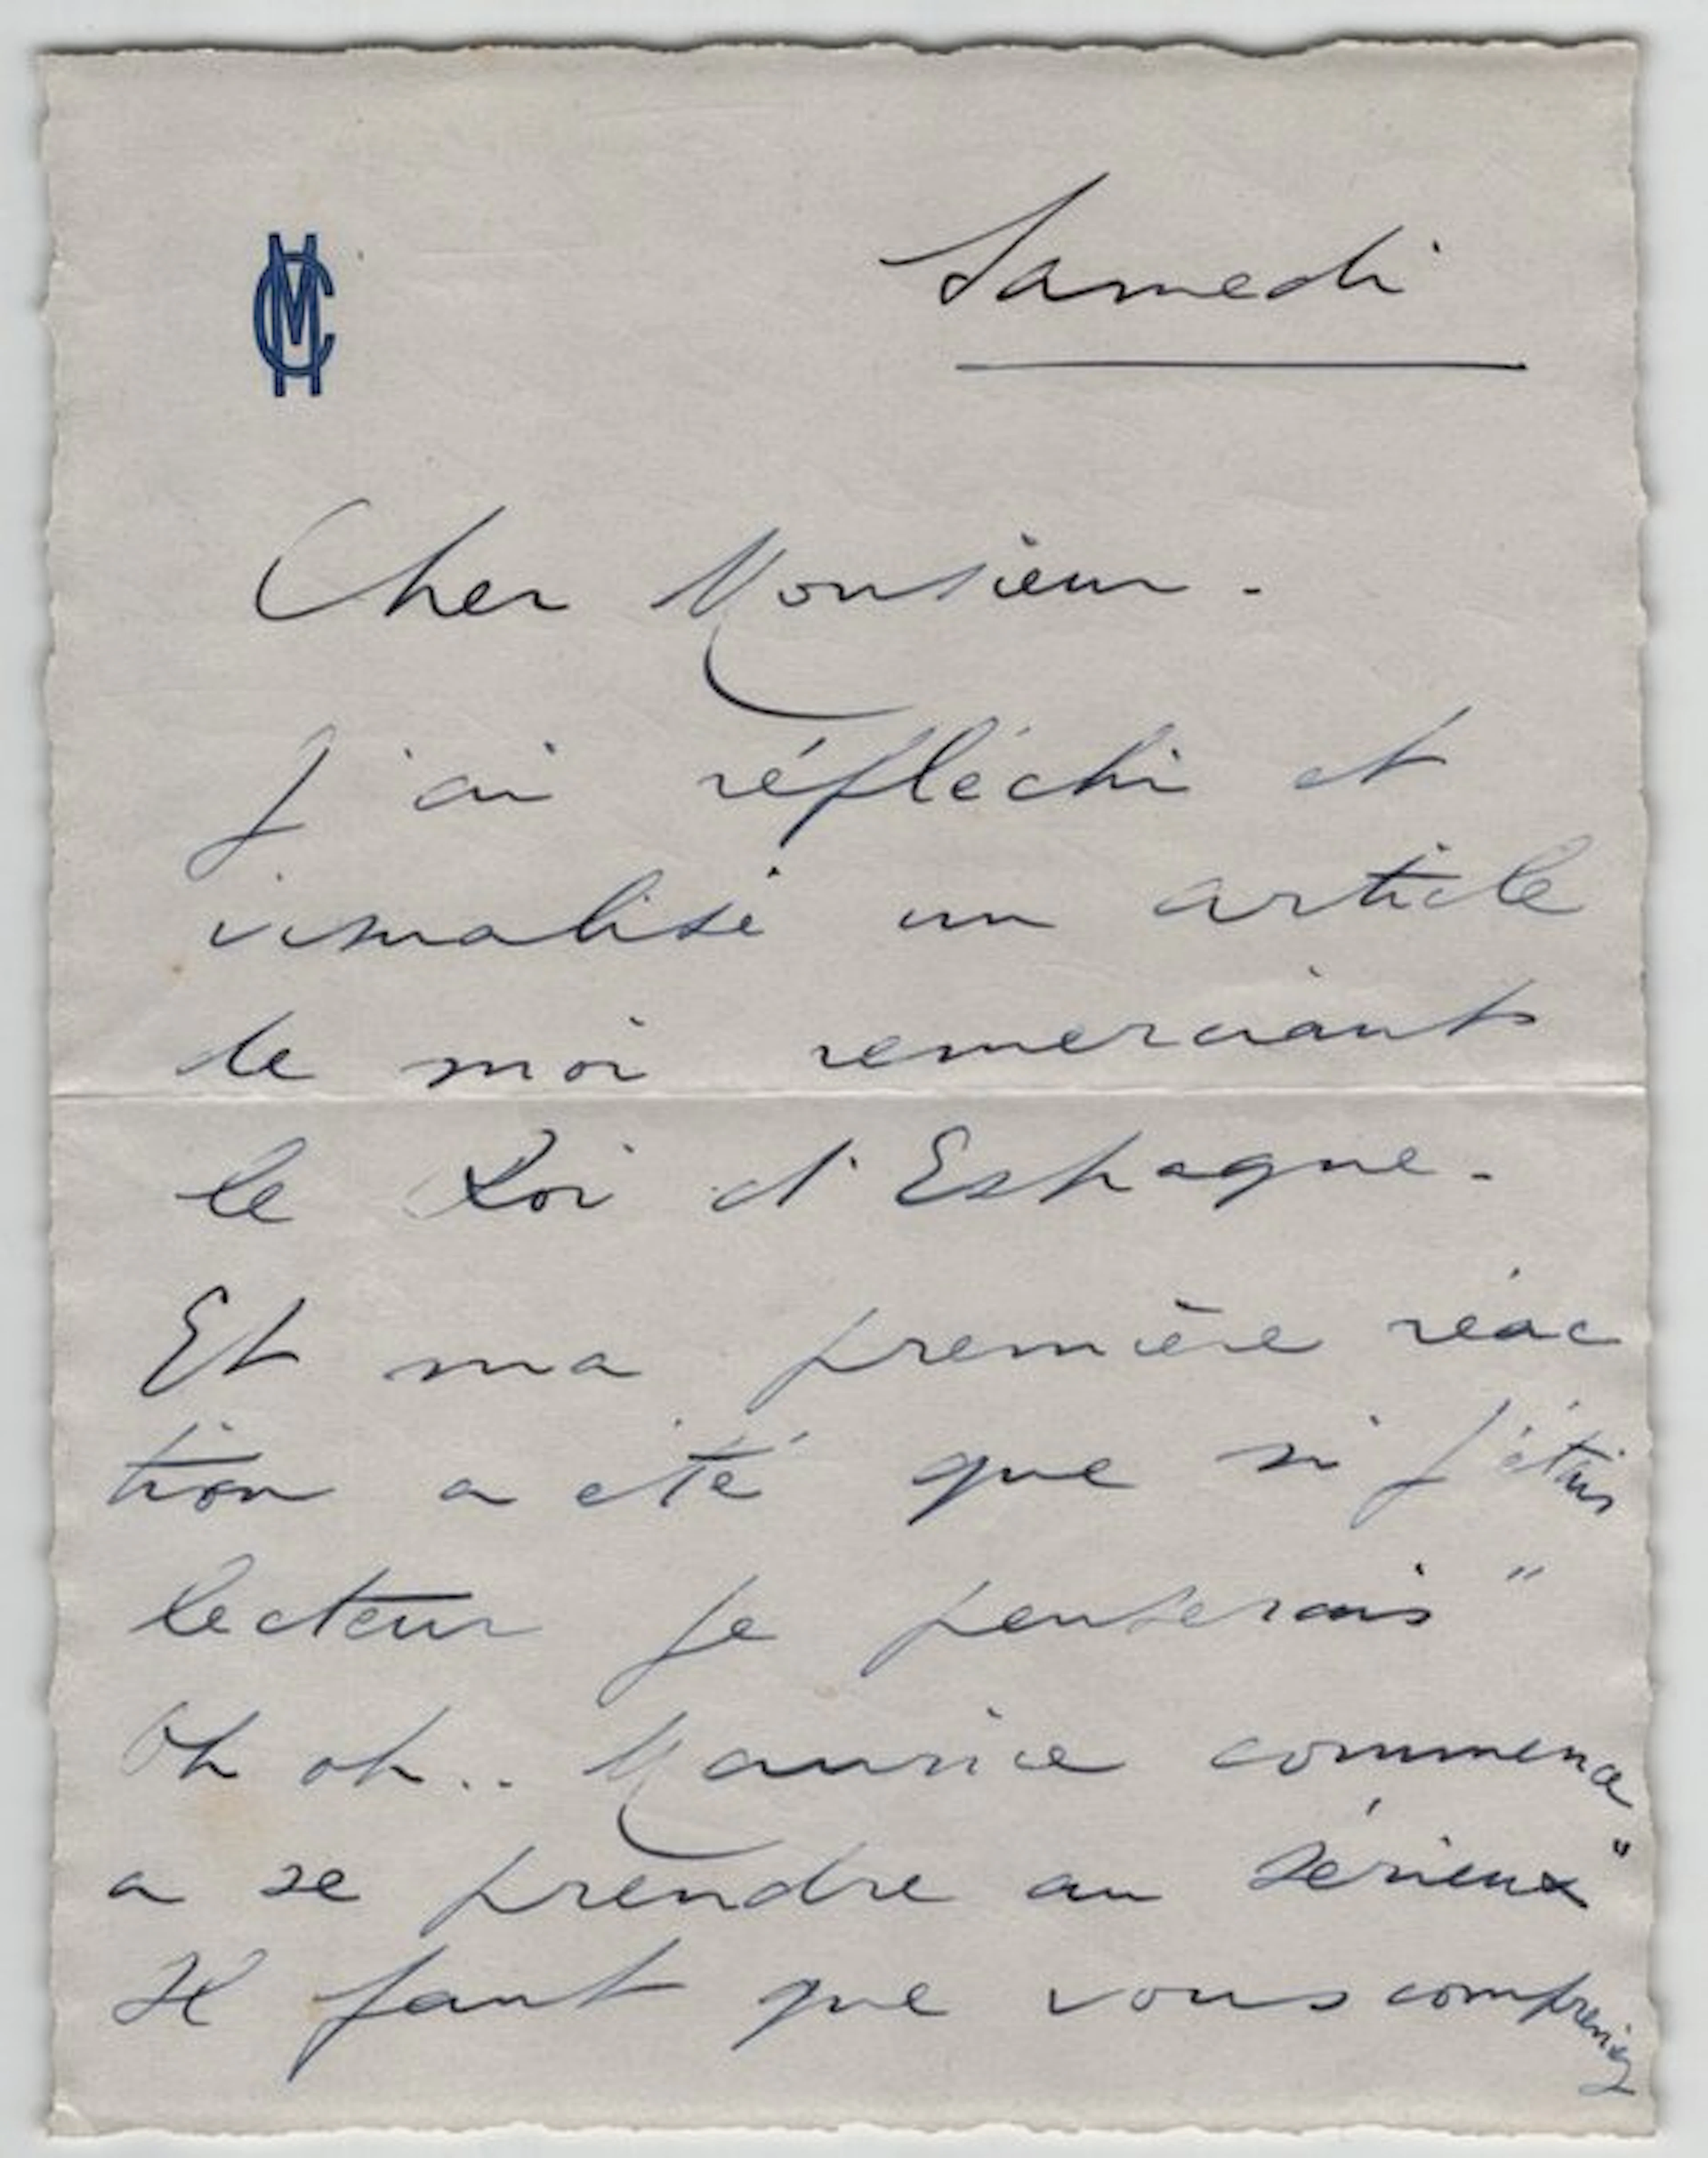 MC
Samedi
Cher Monsieur -
J'ai réfléchi et
visualisé un article
de moi remerciant
le Roi d'Espagne -
Et ma première réac
tion a été que si j'étais
lecteur je penserais "
Oh oh.. Maurice commence
a se prendre au sérieux"
Il faut que vous compreniez